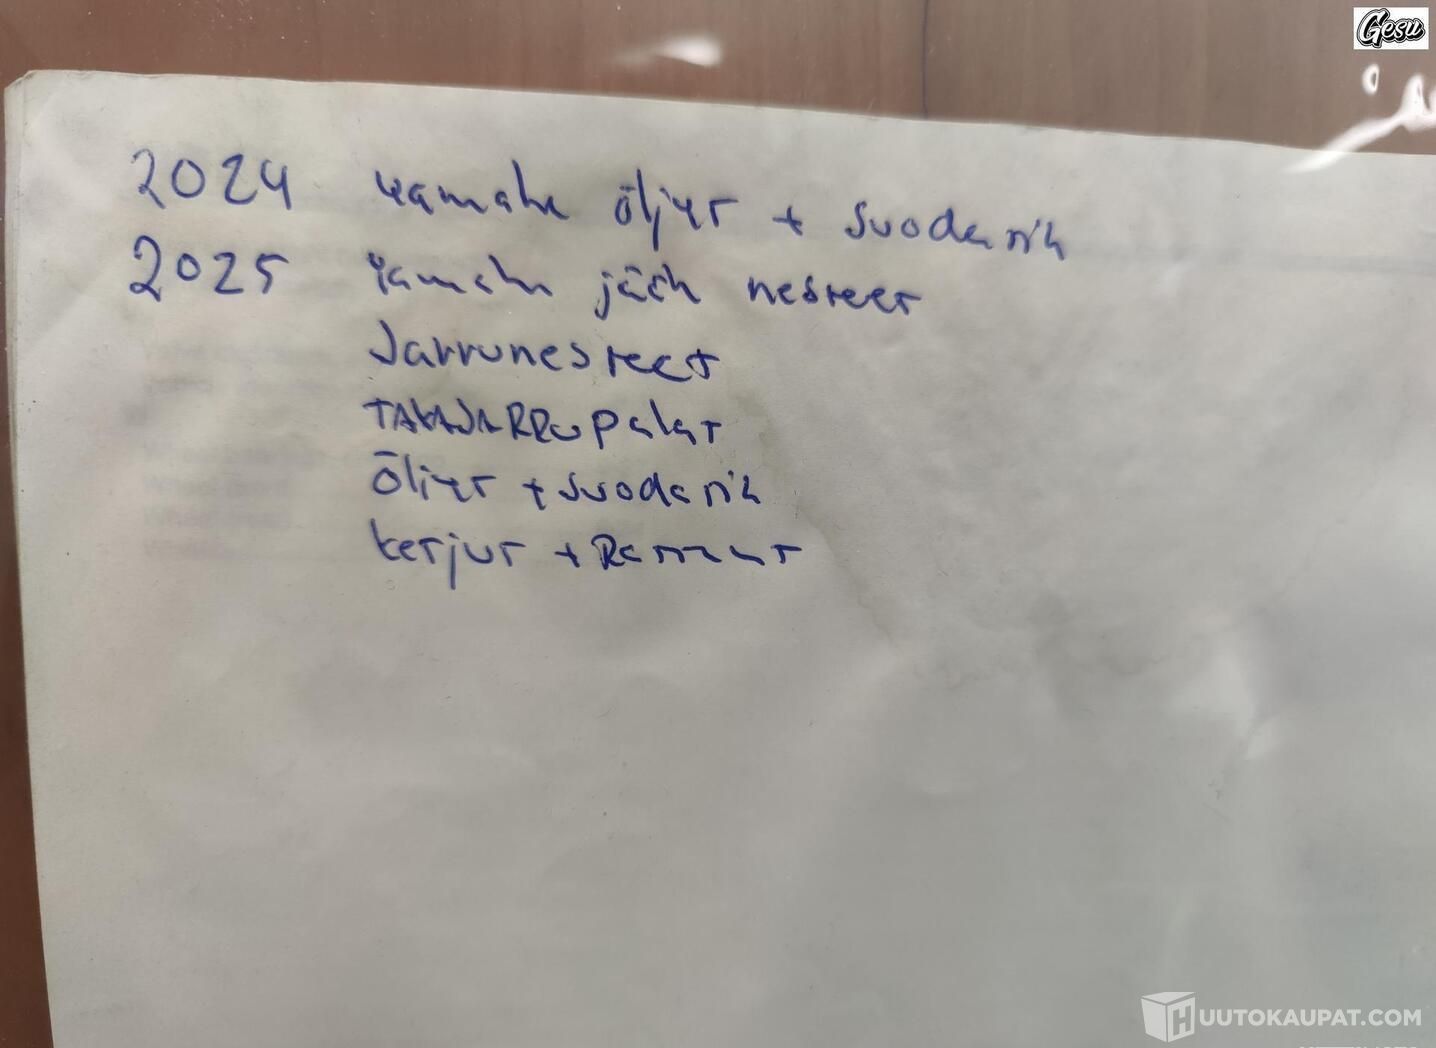 Gesu
2024 yamaha öljyt + suodatin
2025 Yamaha jääh nesteet
Jarrunesteet
TAKAJARRU palat
Öljyt + suodatin
ketjut + Rattaat
HUUTOKAUPAT.COM